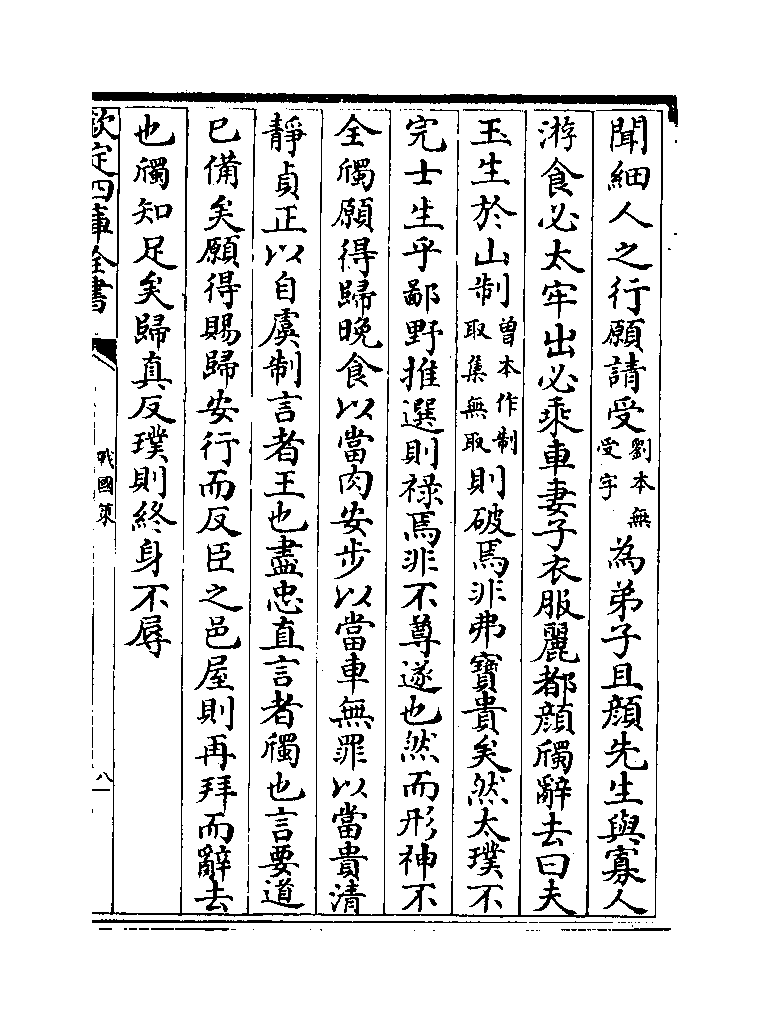 聞細人之行願請受劉本無受字為弟子且顔先生與寡人
游食必太牢出必乘車妻子衣服麗都顔斶辭去曰夫
玉生於山制曽本作制取集無取則破焉非弗寶貴矣然太璞不
完士生乎鄙野推選則禄焉非不尊遂也然而形神不
全斶願得歸晩食以當肉安步以當車無罪以當貴清
靜貞正以自虞制言者王也盡忠直言者斶也言要道
已備矣願得賜歸安行而反臣之邑屋則再拜而辭去
也斶知足矣歸真反璞則終身不辱
欽定四庫全書
戰國策
八